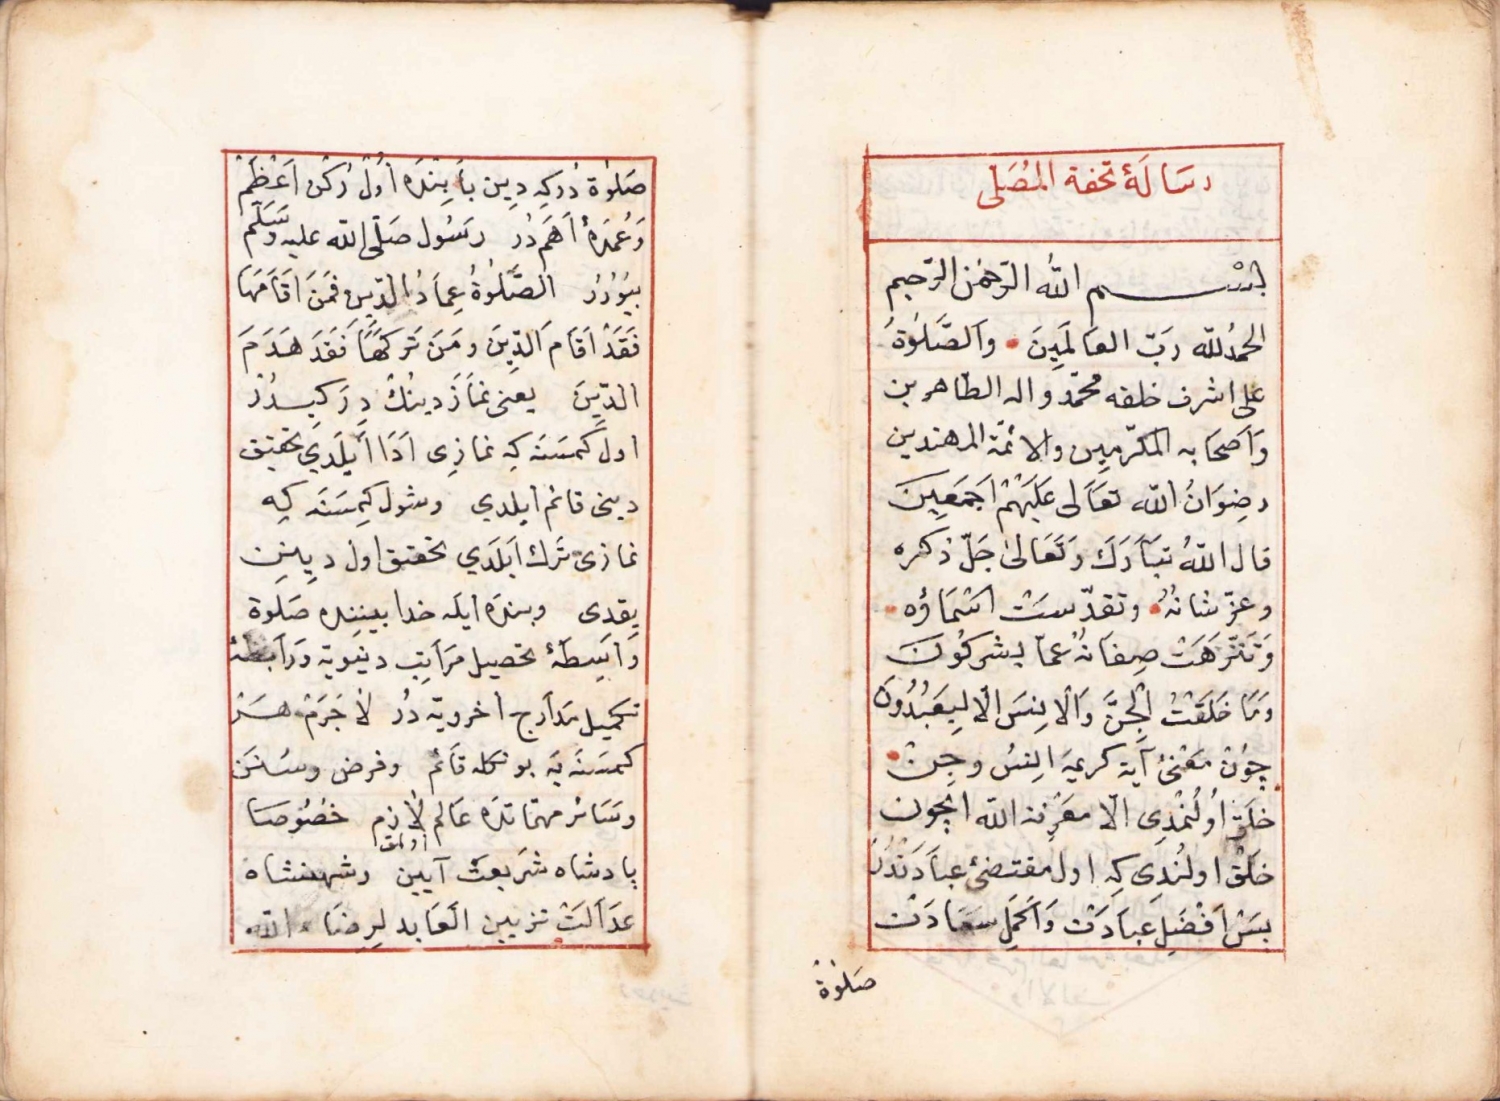 رسالۀ تحفة المُصَلّى
بسم الله الرّحمن الرّحيم
الحمدُ لله رَبّ العالَمِينَ والصَّلوٰةُ
على اشرف خلقه محمّد واله الطّاهرين
وَاَصحَابه المكرّمِين والائمّة المهتدين
رضِوَانُ الله تعَالى عَلَيْهِمْ اَجمَعِينَ
قال اللهُ تبَارَكَ وَتَعَالىٰ جَلّ ذكره
وعزّ شانُهُ وتقدّسَتْ اَسْمَاؤه
وَتَنَزّهَتْ صِفاتهُ عمّا يشركُونَ
وَمَا خَلَقْتُ الْجِنَّ وَالْاِنِسَ الّا لِيَعْبُدُونَ
چُونْ مَعْنىٔ آيۀ كريمه اِنسُ وجِنْ
خلَقْ اُولُنْمَدِى الّا معَرْفة الله ايچون
خلَقْ اولُندِى كه اول مقتضىٔ عبادَتْدُرْ
بَسْ اَفْضَلِ عبادَتْ وَاَكمَلِ سعَادَتْ
صَلوٰةْ
صَلوٰة دُركه دِين بابِنْدَه اَوّل رُكن اَعْظَمْ
وَعُمدَۀ اَهَم دُر رسُول صَلّى الله عليه وَسَلّم
بيُورُر الصَّلوٰةُ عِمادُ الدِّينِ فمَنَ اقَامَهَا
فَقَدْ اَقَامَ الدِّينَ ومَنَ تَركَهَا فَقَدَ هَدَمَ
الدّينَ يعنى نمازْ دينُكْ دِرَكيدُرْ
اول كمسَنَه كه نمازِى اَدَا اَيلَدِي تحقيق
دينى قائم ايلدي وشول كمِسَنَه كه
نمازى تَرك ايَلَدي تحقيق اول دينِن
يقدى وبندَه ايله خدا بيننده صَلوة
وَاسِطَۀ تحصيل مرَاتِب دنيويّه وَرَابطَۀ
تكميل مَدَارج اُخرويّه دُر لاٰجَرَمْ هَرْ
كمسَنَه يَه بونكله قائم وفرض وسُنَن
وسَائر مهمّاتدَه عالم لاٰزم خصُوصا
اولمق
پادشاه شَريعتْ آيين وشهنشاه
عدَالتْ تزيين العَابد لِرضَاء الله